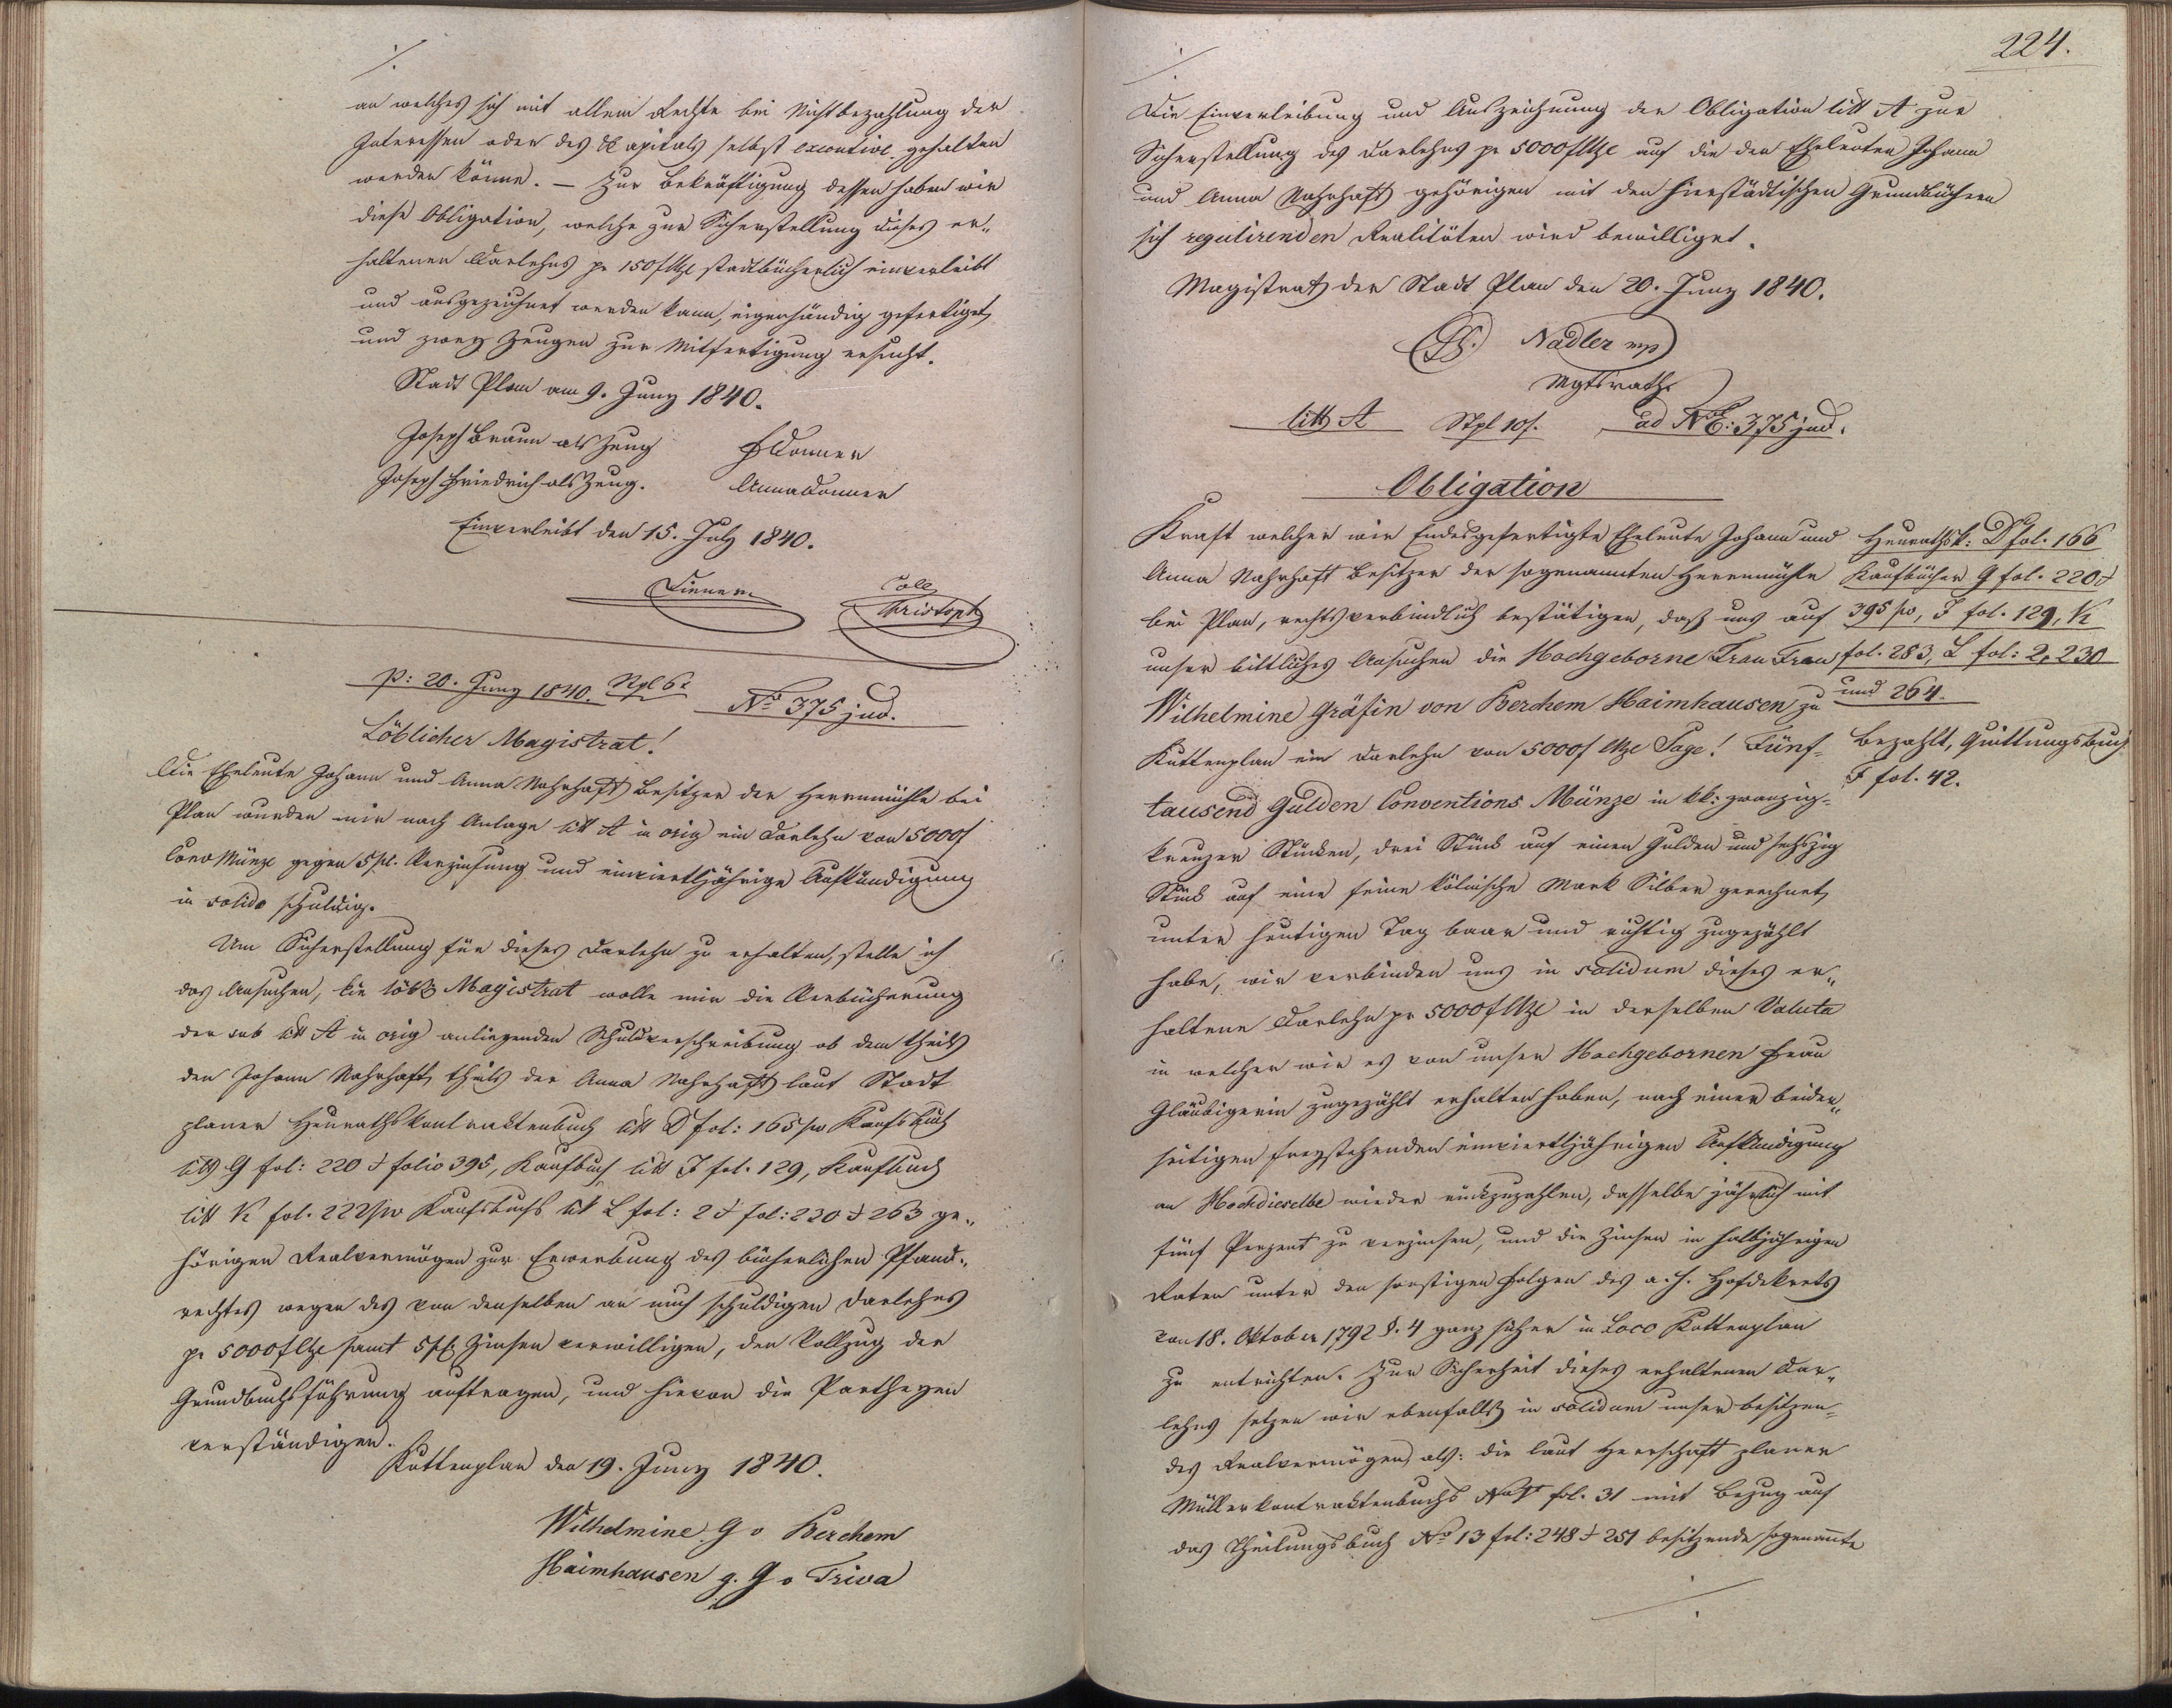 an welches sich mit allem Rechte bei Nichtbezahlung der
Interessen oder des Kapitals selbst executive gehalten
werden könne. — Zur Bekräftigung dessen haben wir
diese Obligation, welche zur Sicherstellung dieses er„
haltenen Darlehns pr 150 f CMze stadtbücherlich einverleibt
und ausgezeichnet werden kann, eigenhändig gefertiget,
und zwey Zeugen zur Mitfertigung ersucht.
Stadt Plan am 9. Juny 1840.
Joseph Braun als Zeug
Joseph Friedrich als Zeug.
Donner
Anna Donner
Einverleibt den 15. July 1840.
Coll
Christoph
p: 20. Juny 1840. Stpl 6 x
No 375 jud.
Löblicher Magistrat!
Die Eheleute Johann und Anna Nahrhaft Besitzer der Herrnmühle bei
Plan wurden mir nach Anlage litt A in orig ein Darlehn von 5000 f
Conv Münze gegen 5 pC. Verzinsung und einviertljährige Aufkündigung
in solido schuldig.
Um Sicherstellung für dieses Darlehn zu erhalten, stelle ich
das Ansuchen, ein löbl Magistrat wolle mir die Verbücherung
der sub litt A in orig anliegenden Schuldverschreibung ob dem theils
den Johann Nahrhaft, theils der Anna Nahrhaft laut Stadt
planer Heurathskontraktenbuch litt D fol: 165 pv Kaufsbuch
litt G fol: 220 & folio 395, Kaufbuch litt J fol. 129, Kaufbuch
litt K fol. 222 pv Kaufsbuchs litt L fol: 2 & fol: 230 & 263 ge„
hörigen Realvermögen zur Erwerbung des bücherlichen Pfand„
rechtes wegen des von denselben an mich schuldigen Darlehns
pr 5000 f CMze samt 5 pC Zinsen verwilligen, den Vollzug der
Grundbuchsführung auftragen, und hievon die Partheyen
verständigen.
Kuttenplan den 19. Juny 1840.
Wilhelmine G v Berchem
Haimhausen g. G v Triva
224.
Die Einverleibung und Auszeichnung der Obligation litt A zur
Sicherstellung des Darlehns pr 5000 f CMze auf die den Eheleuten Johann
und Anna Nahrhaft gehörigen mit den hierstädtischen Grundbüchern
sich regulirenden Realitäten wird bewilliget.
Magistrat der Stadt Plan den 20. Juny 1840.
Nadler mp
Mgtsrath
litt A Stpl 10 f. ad NE: 375 jud.
Obligation
Kraft welcher wir Endesgefertigte Eheleute Johann und
Anna Nahrhaft Besitzer der sogenannten Herrnmühle
bei Plan, rechtsverbindlich bestätigen, daß uns auf
unser bittliches Ansuchen die Hochgeborne Frau Frau
Wilhelmine Gräfin von Berchem Haimhausen zu
Kuttenplan ein Darlehn von 5000 f CMze Sage! Fünf-
tausend Gulden Conventions Münze in kk: zwanzig-
kreuzer Stücken, drei Stück auf einen Gulden und sechszig
Stück auf eine feine kölnische Mark Silber gerechnet,
unter heutigen Tag baar und richtig zugezählt
habe, wir verbinden uns in solidum dieses er„
haltene Darlehn pr 5000 f CMze in derselben Valuta
in welcher wir es von unser Hochgebornen Frau
Gläubigerin zugezählt erhalten haben, nach einer beider„
seitigen freystehenden einviertljährigen Aufkündigung
an Hochdieselbe wieder rückzuzahlen, dasselbe jährlich mit
fünf Perzent zu verzinsen, und die Zinsen in halbjährigen
Raten unter den sonstigen Folgen des a. h. Hofdekrets
von 18. Oktober 1792 §. 4 ganz sicher in Loco Kuttenplan
zu entrichten. Zur Sicherheit dieses erhaltenen Dar„
lehns setzen wir ebenfalls in solidum unser besitzen-
des Realvermögen, als: die laut Herrschaft planer
Müllerkontraktenbuchs fol. 31 mit Bezug auf
das Theilungsbuch No 13 fol: 248 & 251 besitzende sogenannte
Heurathsk: D fol. 166
Kaufbücher G fol. 220 &
395 pv, J fol. 129, K
fol. 283, L fol: 2, 230
und 264.
Bezahlt, Quittungsbuch
F fol. 42.